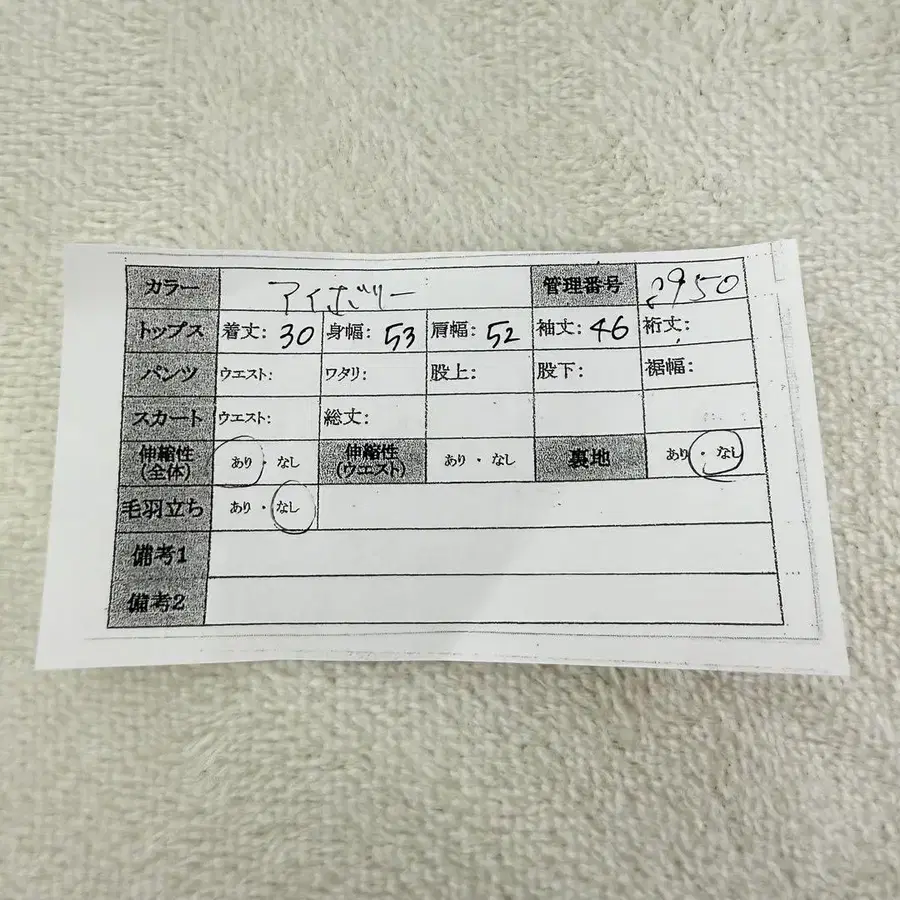 カラー アイボリー 管理番号 2950
トップス 着丈: 30 身幅: 53 肩幅: 52 袖丈: 46 裄丈:
パンツ ウエスト: ワタリ: 股上: 股下: 裾幅:
スカート ウエスト: 総丈:
伸縮性(全体) あり・なし 伸縮性(ウエスト) あり・なし 裏地 あり・なし
毛羽立ち あり・なし
備考1
備考2